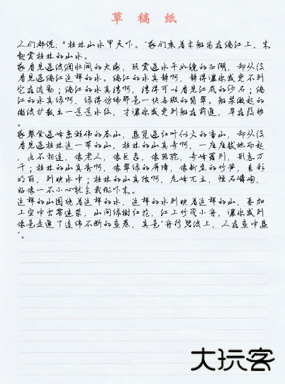 草 稿 纸
人们都说，“桂林山水甲天下。”我们乘着木船荡在漓江上，来
观赏桂林的山水。
我看见过波澜壮阔的大海，玩赏过水平如镜的西湖，却从没
看见过漓江这样的水。漓江的水真静啊，静得让你感觉不到
它在流动；漓江的水真清啊，清得可以看见江底的沙石；漓
江的水真绿啊，绿得仿佛那是一块无瑕的翡翠。船桨激起的
微波扩散出一道道水纹，才让你感觉到船在前进，岸在后移
。
我攀登过峰峦雄伟的泰山，游览过红叶似火的香山，却从没
看见过桂林这一带的山，桂林的山真奇啊，一座座拔地而起
，各不相连，像老人，像巨象，像骆驼，奇峰罗列，形态万
千；桂林的山真秀啊，像翠绿的屏障，像新生的竹笋，色彩
明丽，倒映水中；桂林的山真险啊，危峰兀立，怪石嶙峋，
好像一不小心就会栽倒下来。
这样的山围绕着这样的水，这样的水倒映着这样的山，再加
上空中云雾迷蒙，山间绿树红花，江上竹筏小舟，让你感到
像是走进了连绵不断的画卷，真是“舟行碧波上，人在画中游
”。
大玩客